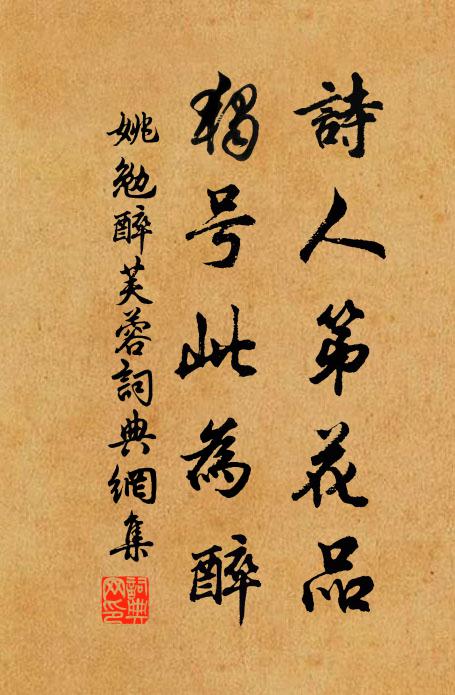 詩人第花品
獨号此為醉
姚勉醉芙蓉詞典網集
詞典网印